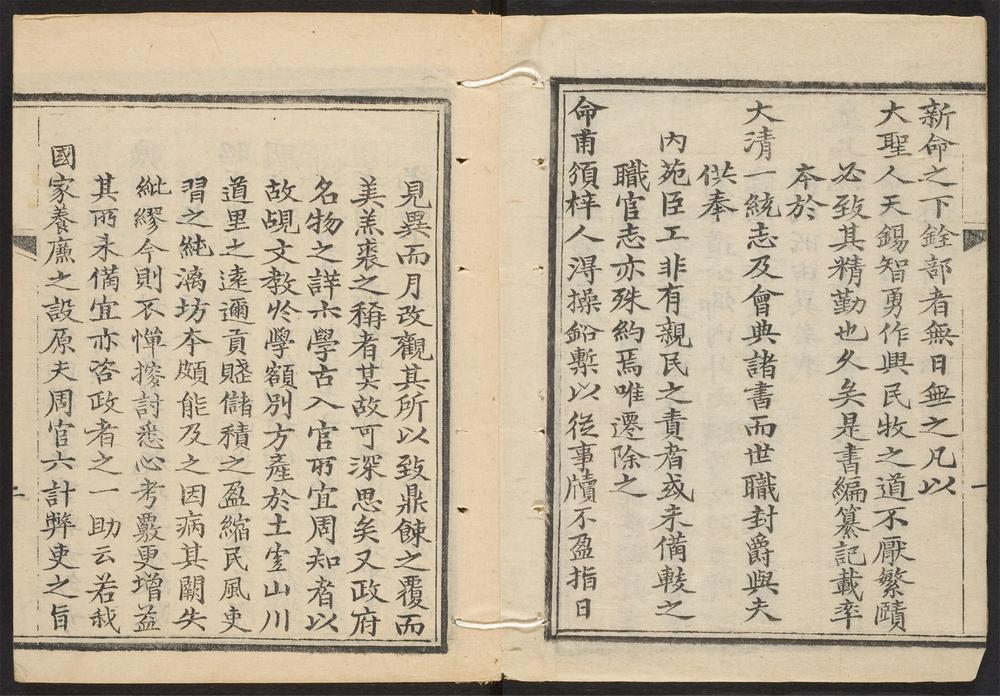 新命之下銓部者無日無之凡以
大聖人天錫智勇作興民牧之道不厭繁賾
必致其精勤也久矣是書編纂記載率
夲於
大清一統志及會典諸書而世職封爵與夫
供奉
內苑臣工非有親民之責者或未備較之
職官志亦殊約焉唯遷除之
命甫須梓人淂操鉛槧以從事牘不盈指日
一
見異而月改觀其所以致鼎餗之覆而
美羔裘之稱者其故可深思矣又政府
名物之詳六學古入官所宜周知者以
故覘文教於學額別方產於土宜山川
道里之遠邇貢賤儲積之盈縮民風吏
習之純漓坊夲頗能及之因病其闕失
紕繆今則不憚搜討悉心考覈更增益
其所未備宜亦咨政者之一助云若我
國家養廉之設原夫周官六計弊吏之旨
二